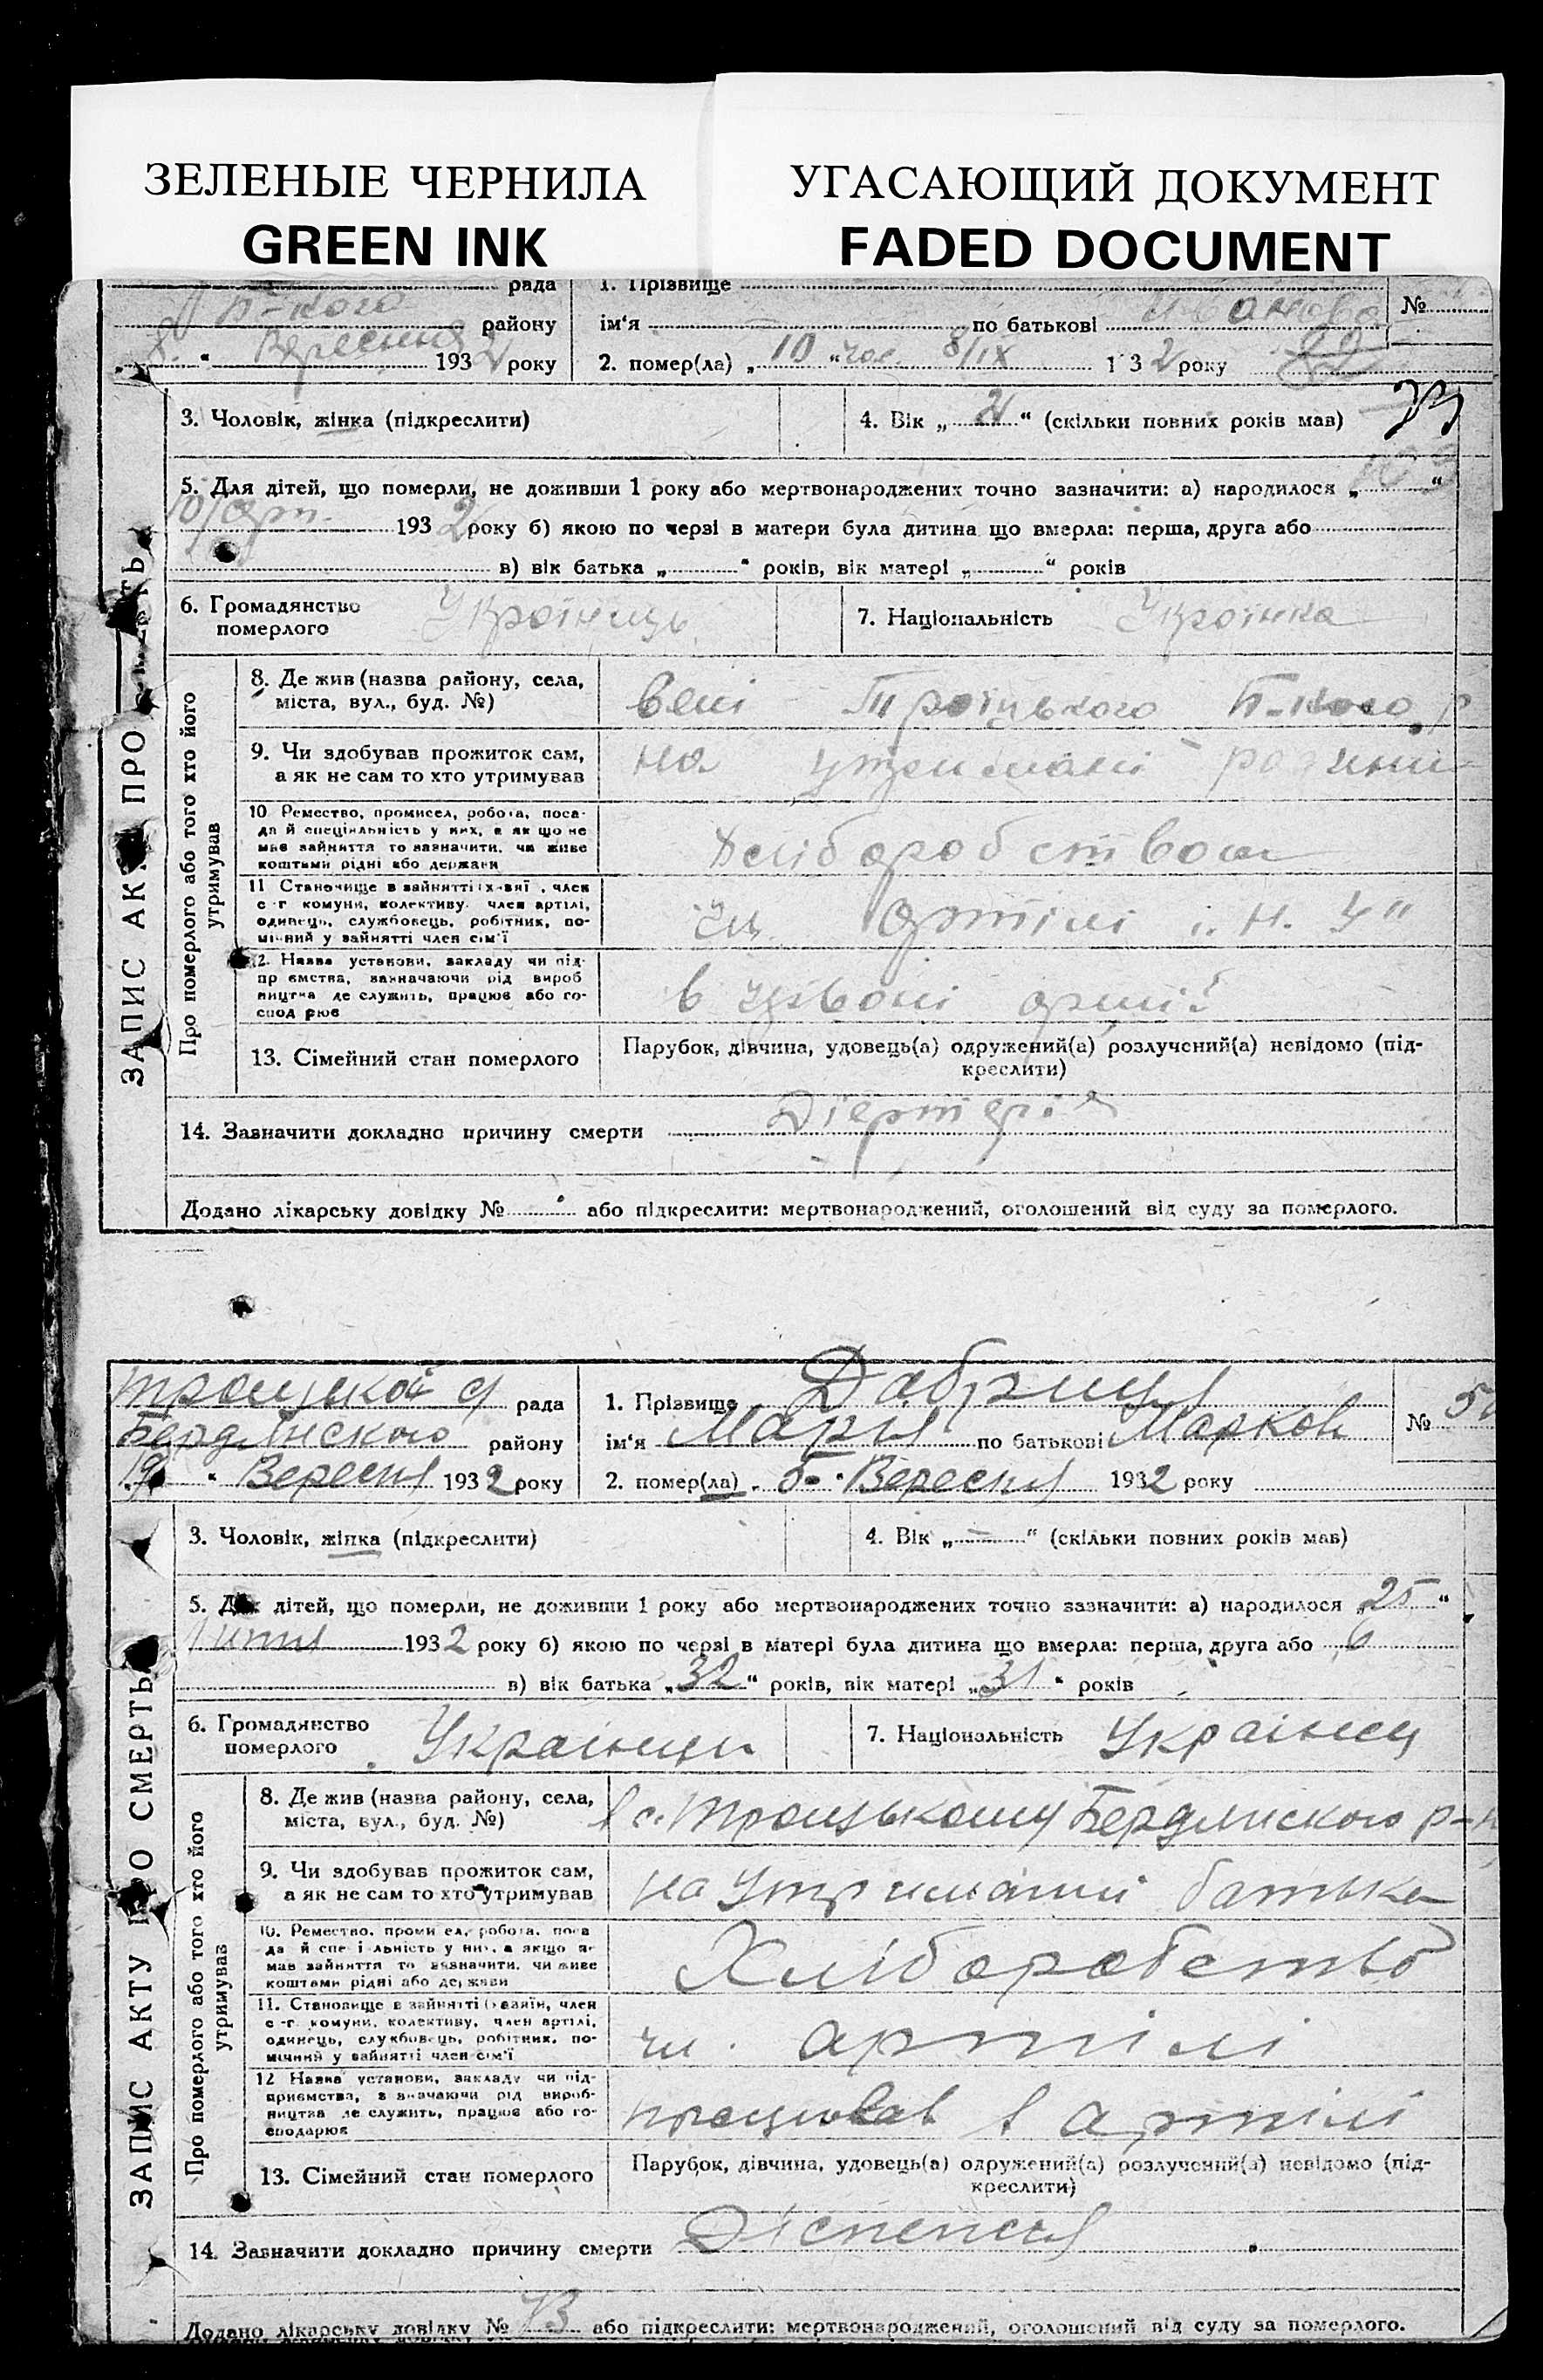 ЗЕЛЕНЫЕ ЧЕРНИЛА
GREEN INK
УГАСАЮЩИЙ ДОКУМЕНТ
FADED DOCUMENT
рада
1. Прізвище
р-ного району
ім'я по батькові №
8 " Вересня 1932 року
2. помер(ла) „ 10 "час. 8/ІХ 1932 року
ЗАПИС АКТУ ПРО
3. Чоловік, жінка (підкреслити)
4. Вік „ 2 “ (скільки повних років мав)
5. Для дітей, що померли, не доживши 1 року або мертвонароджених точно зазначити: а) народилося „ “
1932 року б) якою по черзі в матери була дитина що вмерла: перша, друга або
в) вік батька „ “ років, вік матері „ “ років
6. Громадянство померлого Українець
7. Національність Українка
Про померлого або того хто його утримував
8. Де жив (назва району, села,
міста, вул., буд. №)
Троіцького
9. Чи здобував прожиток сам,
а як не сам то хто утримував
на утриманні родини
10 Ремество, промисел, робота, поса-
да й спеціяльність у них, а як що не
мав зайняття то зазначити, чи живе
коштами рідні або держави
Хліборобством
11 Становище в зайнятті (х-зяї , член
с -г комуни, колективу, член артілі,
одинець, службовець, робітник, по-
мічний у зайнятті член сім'ї
чл. артілі
12. Назва установи, закладу чи під-
приємства, зазначаючи рід вироб
ництва де служить, працює або го-
сподарює
в червоні армії
13. Сімейний стан померлого
Парубок, дівчина, удовець(а) одружений(а) розлучений(а) невідомо (під-
креслити)
14. Зазначити докладно причину смерти
Діфтерія
Додано лікарську довідку № або підкреслити: мертвонароджений, оголошений від суду за померлого.
Троицкой с рада
1. Прізвище
Бердянского району
ім'я Марія по батькові Марков №
" Вересня 1932 року
2. помер(ла) „ " Вересня 1932 року
ЗАПИС АКТУ ПРО СМЕРТЬ
3. Чоловік, жінка (підкреслити)
4. Вік „ — “ (скільки повних років мав)
5. Для дітей, що померли, не доживши 1 року або мертвонароджених точно зазначити: а) народилося „ 25 “
1932 року б) якою по черзі в матері була дитина що вмерла: перша, друга або 6
в) вік батька „ 32 “ років, вік матері „ 31 “ років
6. Громадянство померлого Украінци
7. Національність Украінец
Про померлого або того хто його утримував
8. Де жив (назва району, села,
міста, вул., буд. №)
в с. Троицькому Бердянского р-н
9. Чи здобував прожиток сам,
а як не сам то хто утримував
на утриманні батька
10. Ремество, промисел, робота, поса
да й спеціяльність у них, а якщо не
мав зайняття то зазначити, чи живе
коштами рідні або держави
Хліборобство
11. Становище в зайнятті (хазяїн, член
с -г. комуни, колективу, член артілі,
одинець, службовець, робітник, по-
мічний у зайнятті член сім'ї
чл. артілі
12 Назва установи, закладу чи під-
приємства, зазначаючи рід вироб-
ництва де служить, працює або го-
сподарює
працював в артілі
13. Сімейний стан померлого
Парубок, дівчина, удовець(а) одружений(а) розлучений(а) невідомо (під-
креслити)
14. Зазначити докладно причину смерти
Діспепсія
Додано лікарську довідку № або підкреслити: мертвонароджений, оголошений від суду за померлого.